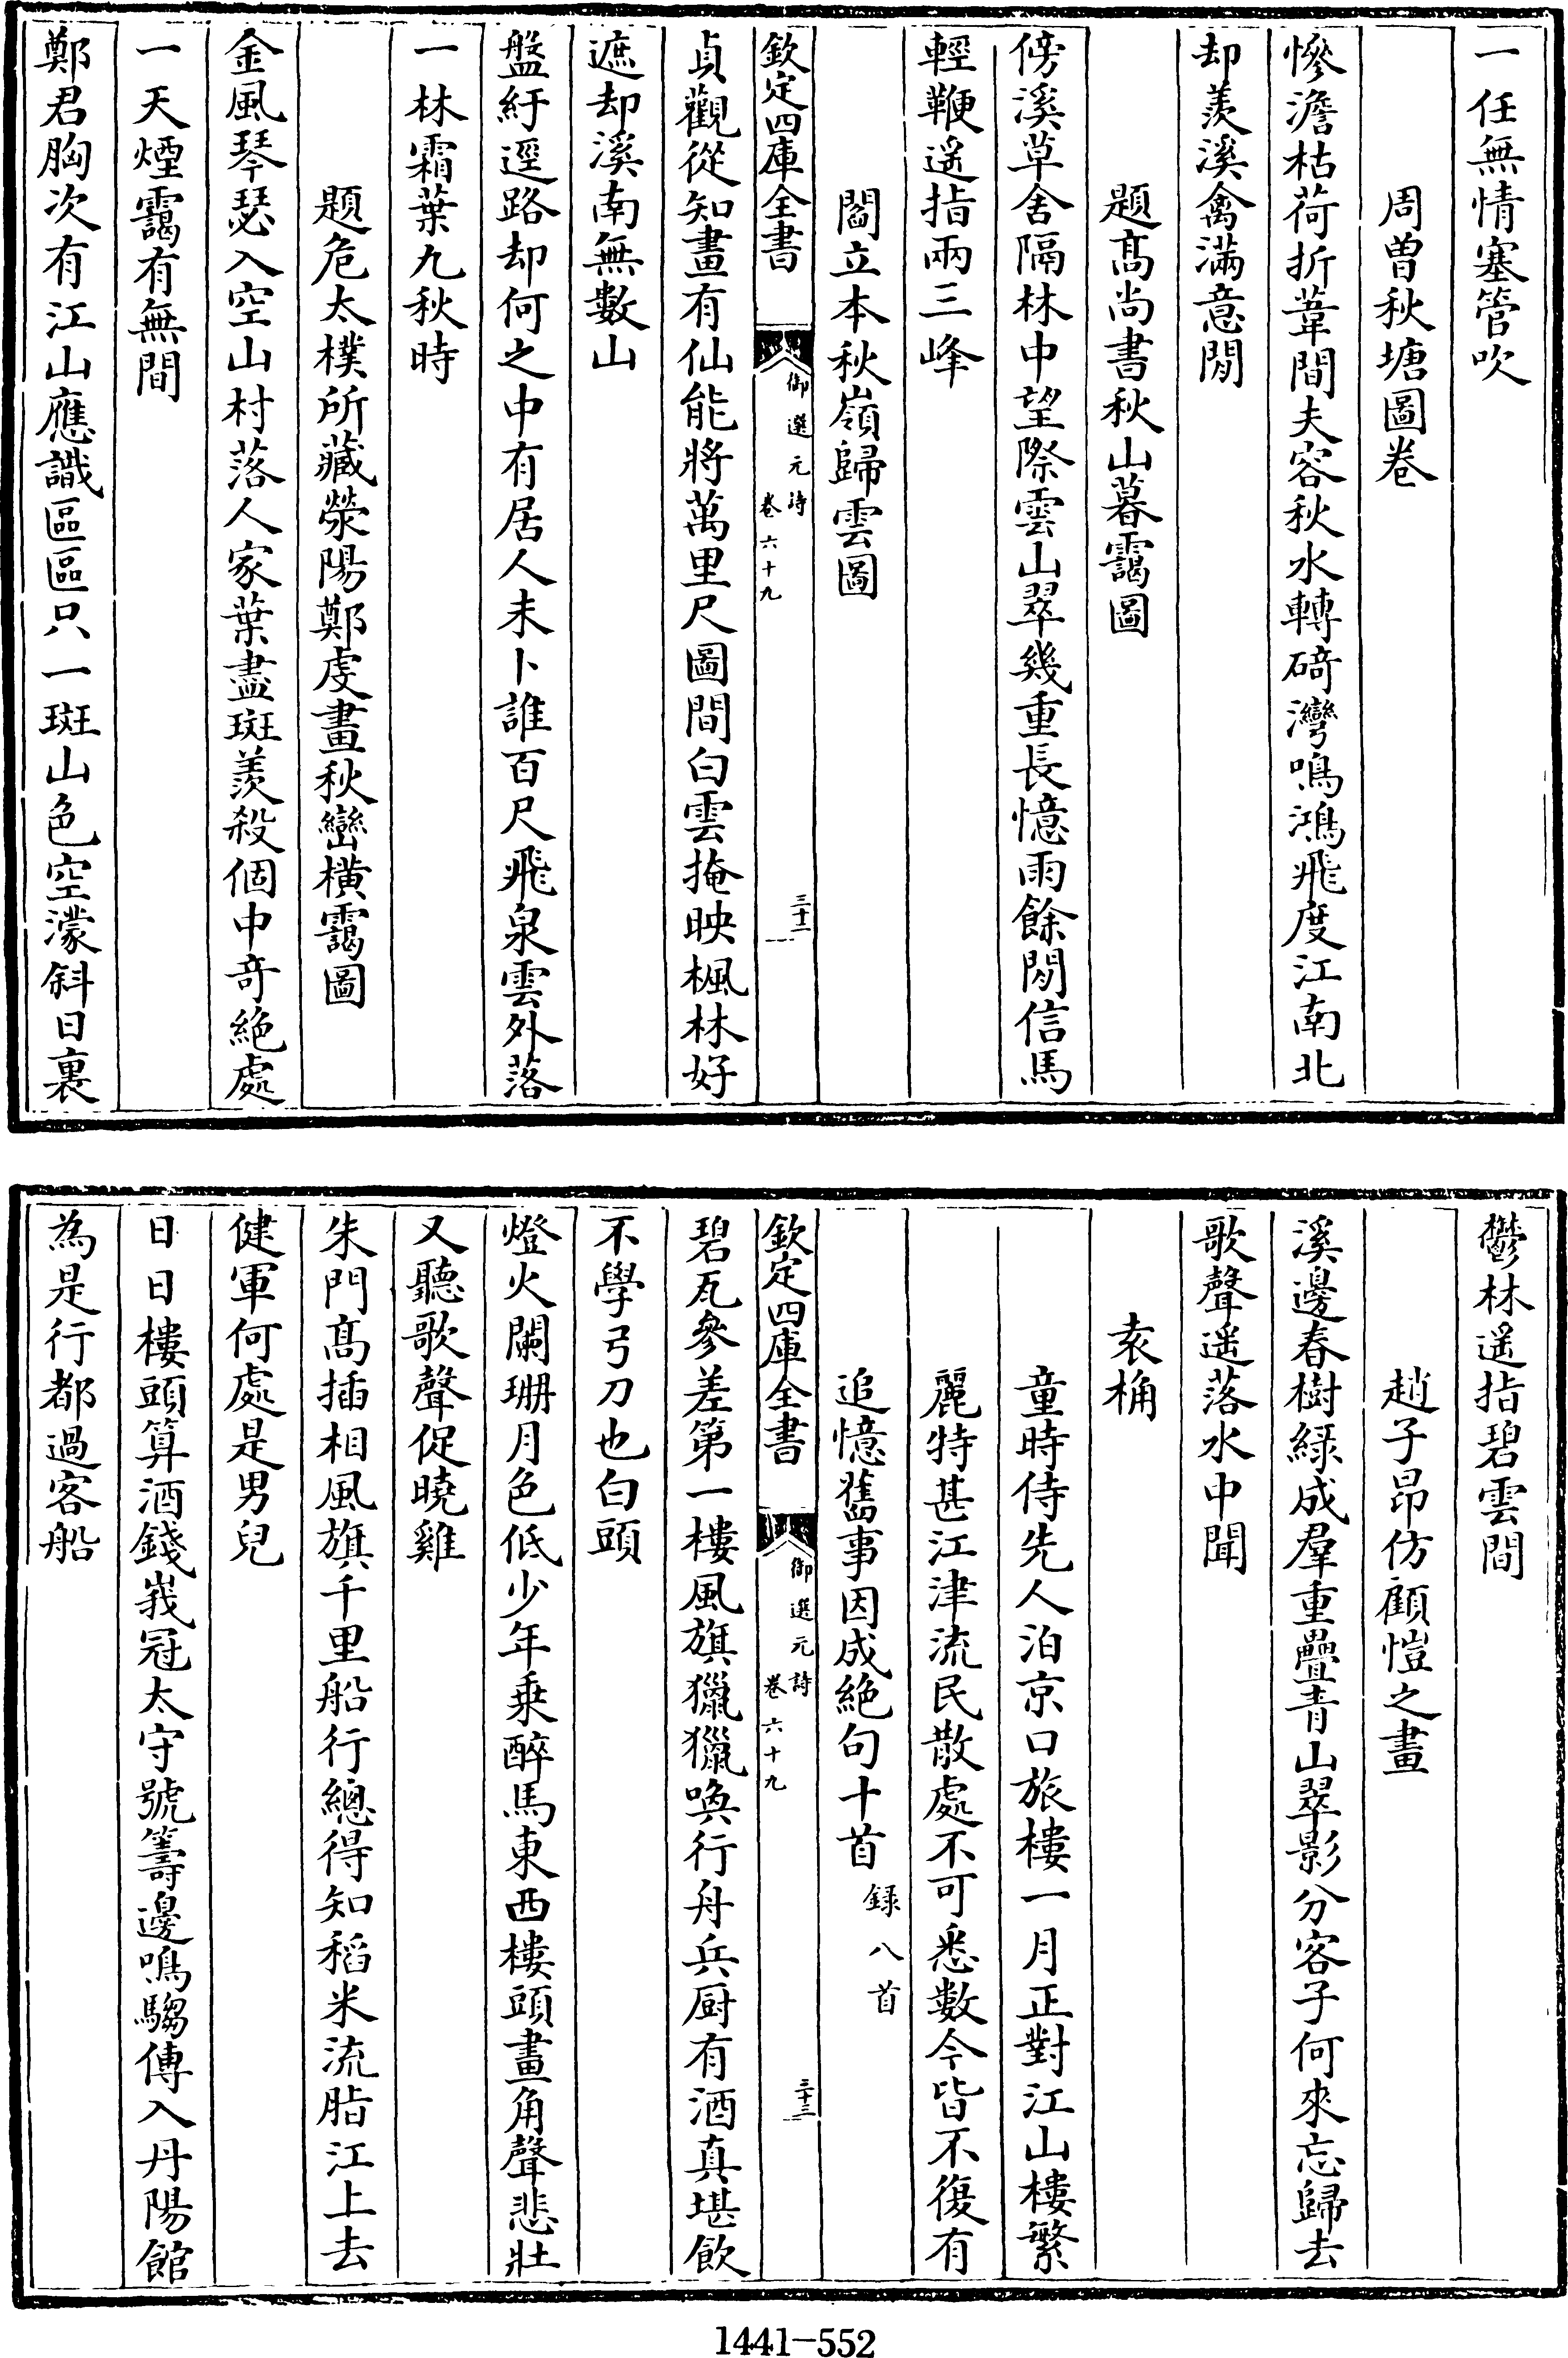 一任無情塞管吹
周曽秋塘圖巻
慘澹枯荷折葦間夫容秋水轉碕灣鳴鴻飛度江南北
却羨溪禽滿意閒
題髙尚書秋山暮靄圖
傍溪草舍隔林中望際雲山翠幾重長憶雨餘閒信馬
輕鞭遥指兩三峰
閻立本秋嶺歸雲圖
欽定四庫全書
御選元詩
卷六十九
三十二
貞觀從知畫有仙能將萬里尺圖間白雲掩映楓林好
遮却溪南無數山
盤紆逕路却何之中有居人未卜誰百尺飛泉雲外落
一林霜葉九秋時
題危太樸所藏滎陽鄭虔畫秋巒橫靄圖
金風琴瑟入空山村落人家葉盡斑羨殺個中奇絶處
一天煙靄有無間
鄭君胸次有江山應識區區只一斑山色空濛斜日裏
鬱林遥指碧雲間
趙子昂仿顧愷之畫
溪邊春樹緑成羣重疊青山翠影分客子何來忘歸去
歌聲遥落水中聞
袁桷
童時侍先人泊京口旅樓一月正對江山樓繁
麗特甚江津流民散處不可悉數今皆不復有
追憶舊事因成絶句十首録八首
欽定四庫全書
御選元詩
卷六十九
三十三
碧瓦參差第一樓風旗獵獵喚行舟兵厨有酒真堪飲
不學弓刀也白頭
燈火闌珊月色低少年乗醉馬東西樓頭畫角聲悲壯
又聽歌聲促曉雞
朱門髙插相風旗千里船行總得知稻米流脂江上去
健軍何處是男兒
日日樓頭算酒錢峩冠太守號籌邊鳴騶傳入丹陽館
為是行都過客船
1441-552